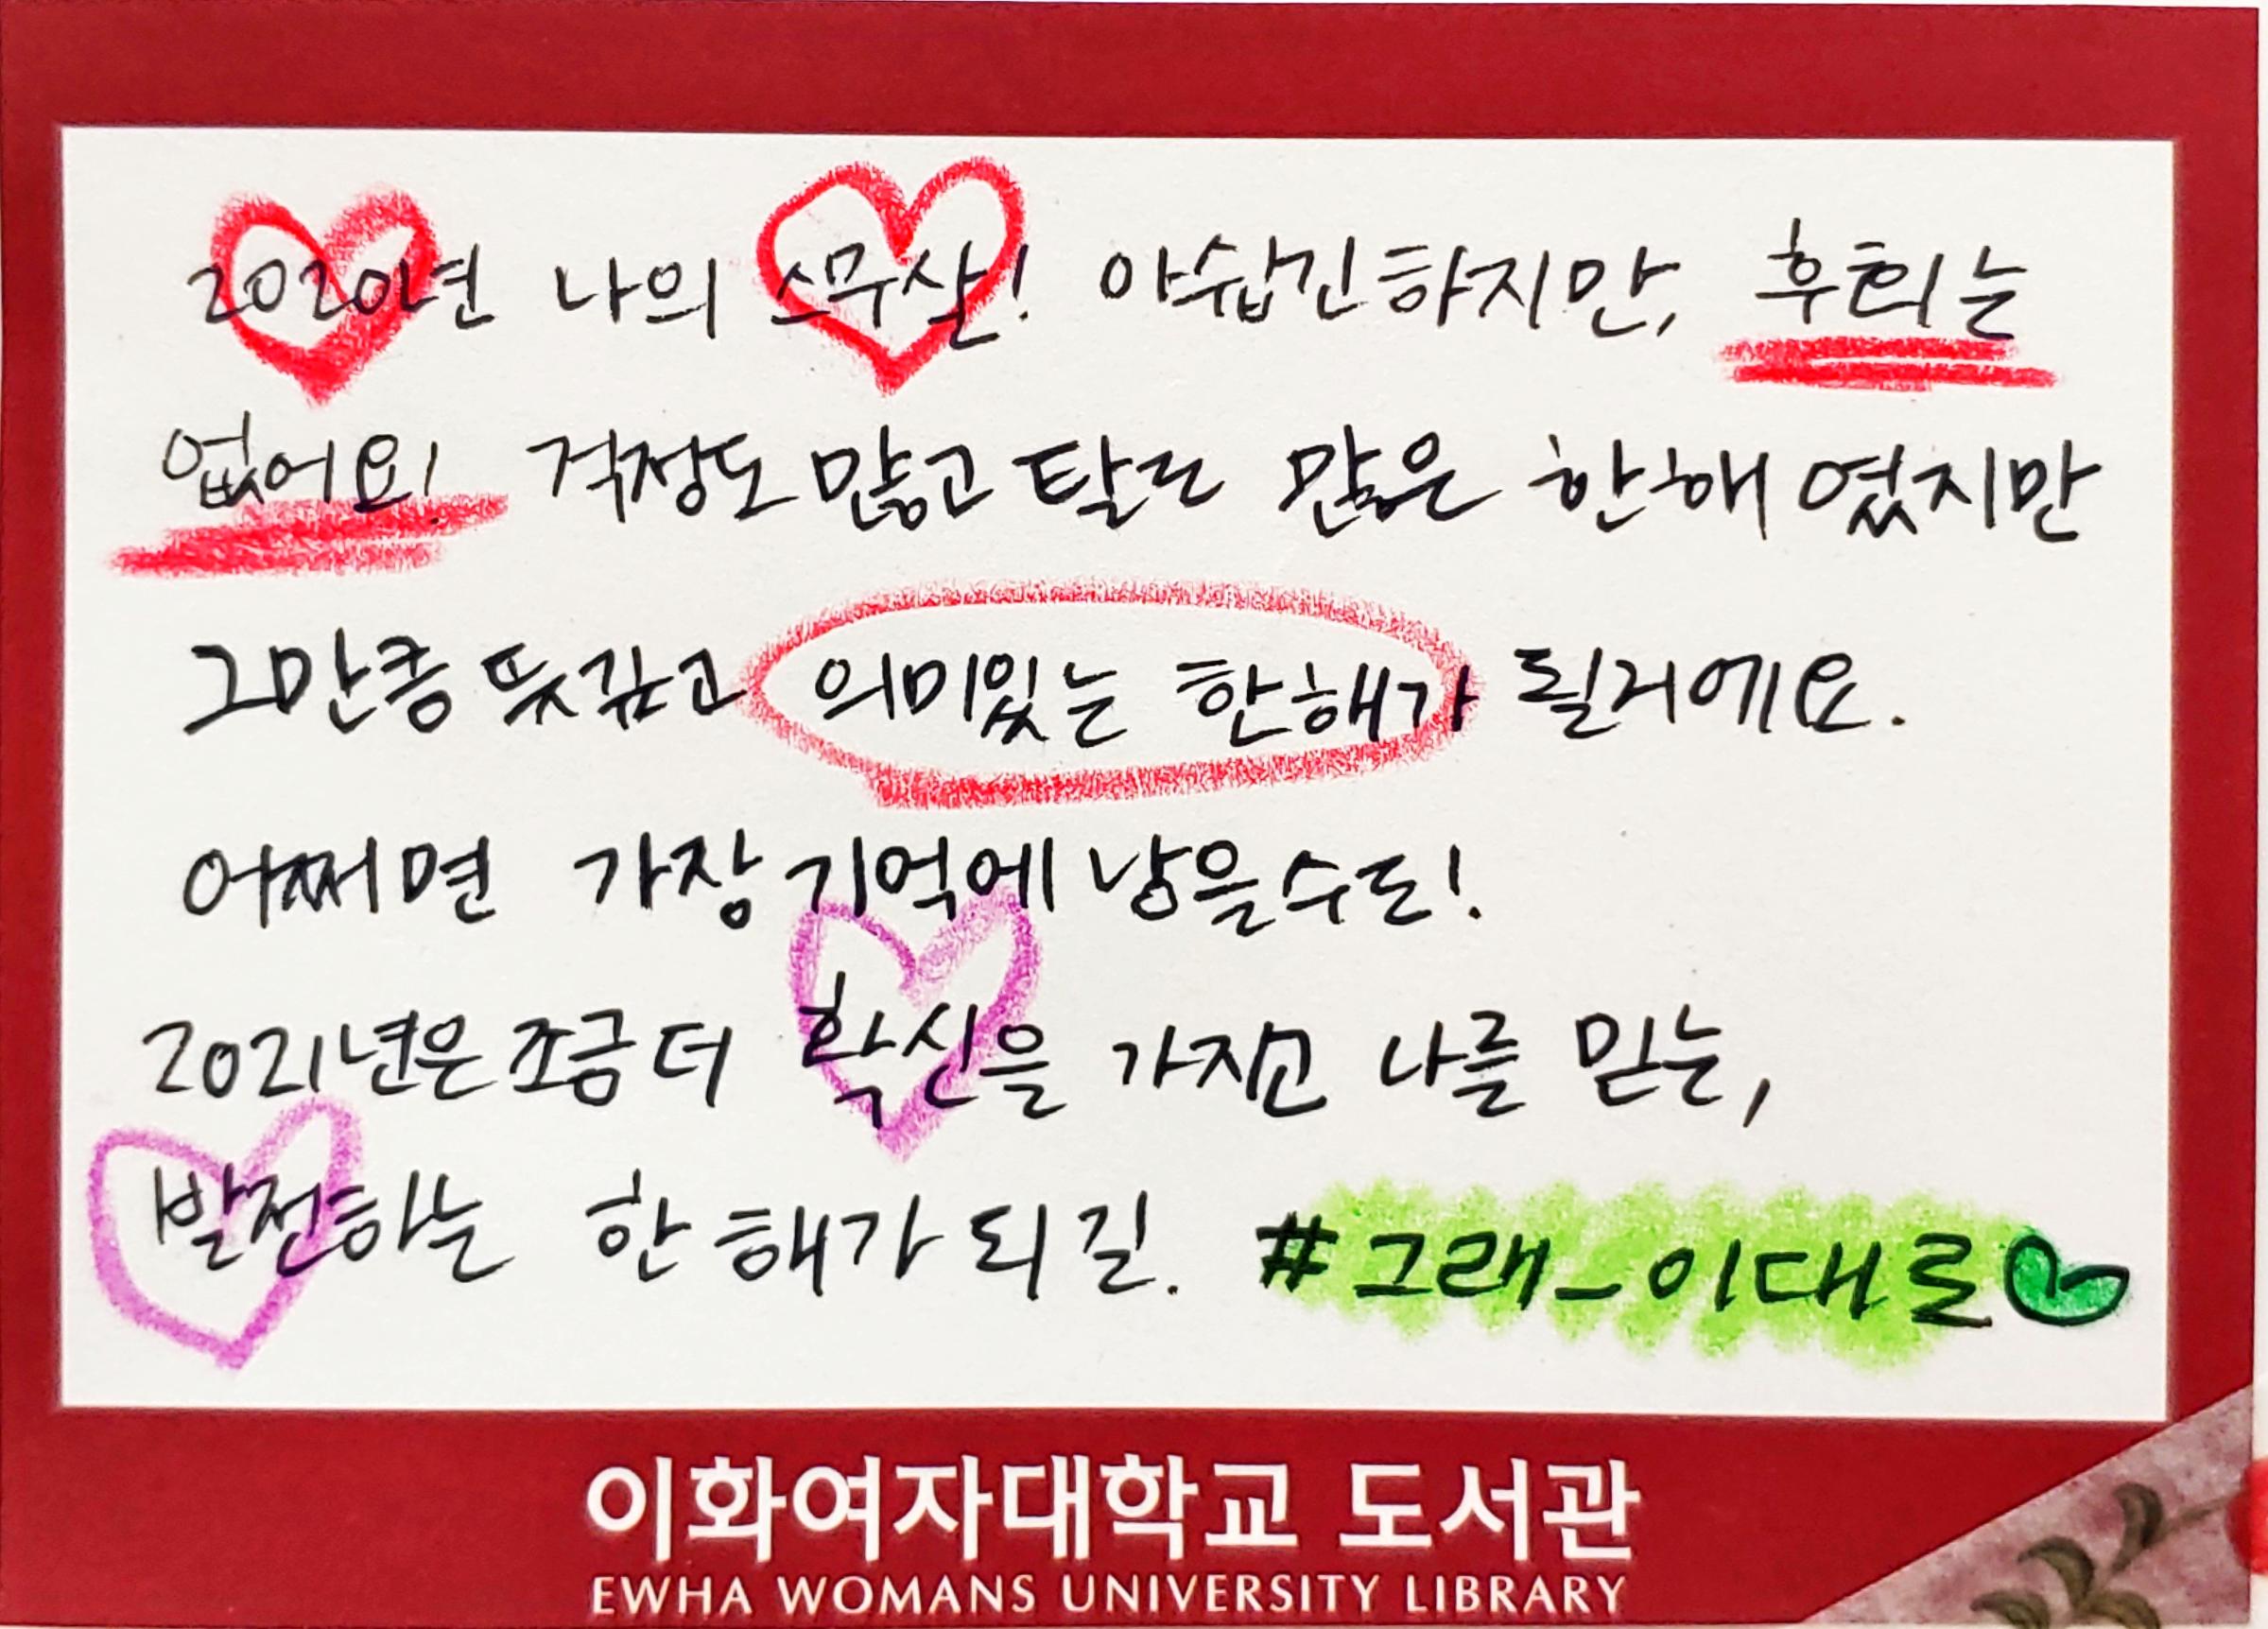 2020년 나의 스무살! 아쉽긴하지만, 후회는
없어요! 걱정도 많고 탈도 많은 한해 였지만
그만큼 뜻깊고 의미있는 한해가 될거에요.
어쩌면 가장 기억에 남을수도!
2021년은 조금 더 확신을 가지고 나를 믿는,
발전하는 한 해가 되길. #그래_이대로
이화여자대학교 도서관
EWHA WOMANS UNIVERSITY LIBRARY